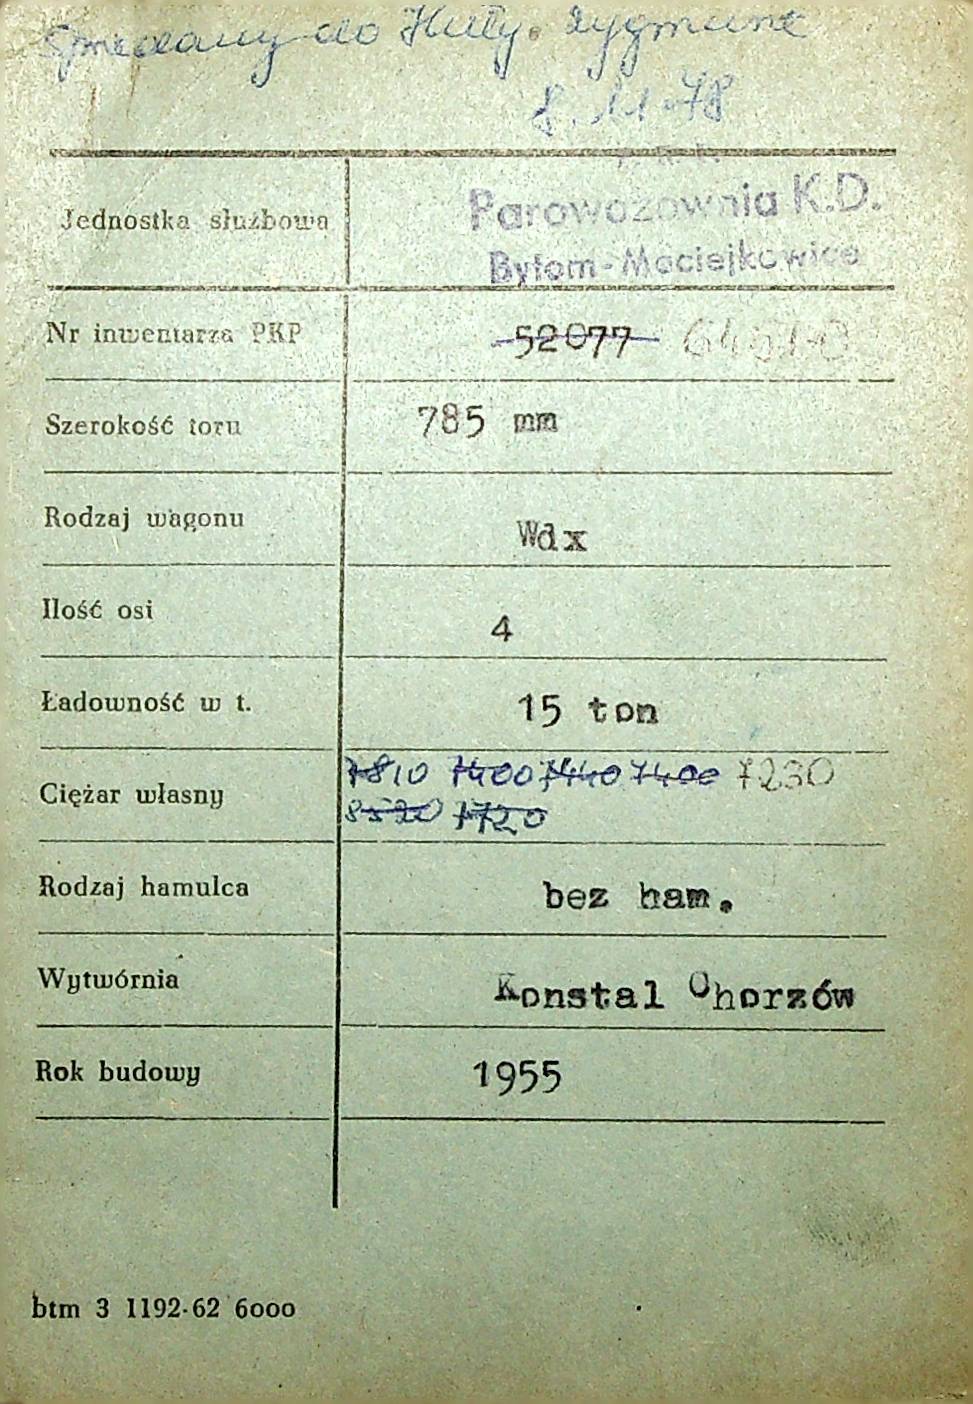 Sprzedany do Huty. Zygmunt
8.11-78
Jednostka służbowa
Parowozownia K.D.
Bytom-Maciejkowice
Nr inwentarza PKP 52077
Szerokość toru 785 mm
Rodzaj wagonu Wdx
Ilość osi 4
Ładowność w t. 15 ton
7810 7400 7440 7400 7230
Ciężar własny
8520 7720
Rodzaj hamulca bez ham.
Wytwórnia Konstal Chorzów
Rok budowy 1955
btm 3 1192-62 6000